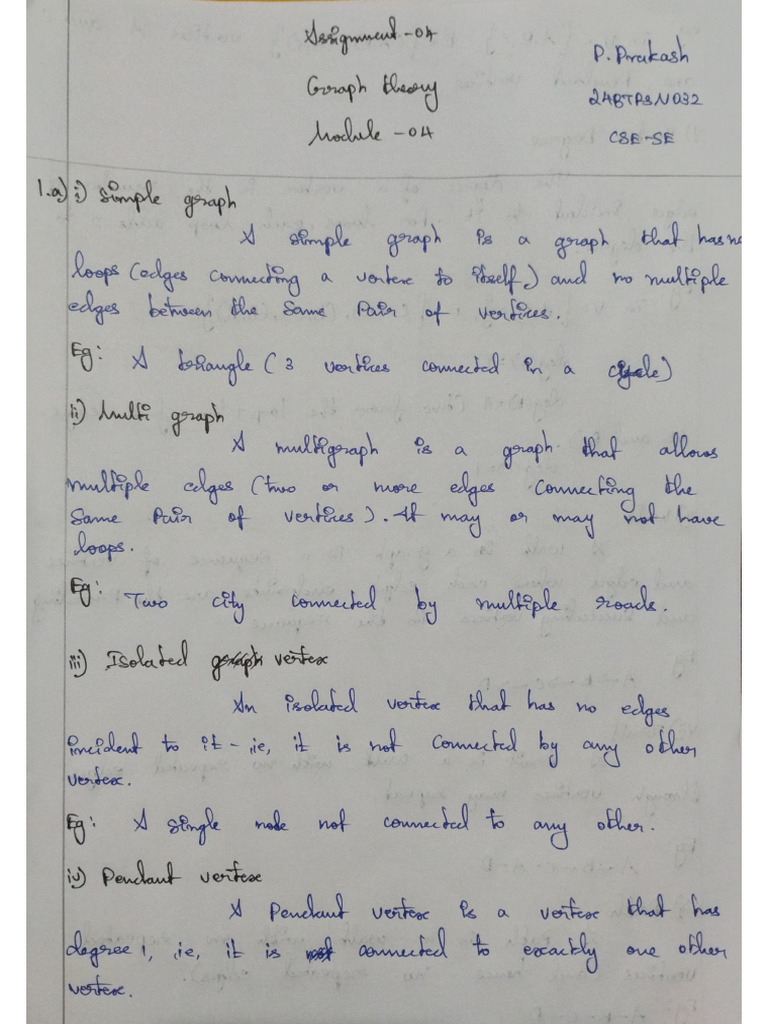 Assignment-04
P. Prakash
Graph theory
24BTPSN032
Module-04
CSE-SE
1.a) i) Simple graph
A simple graph is a graph that has no
loops (edges connecting a vertex to itself) and no multiple
edges between the same pair of vertices.
Eg: A triangle (3 vertices connected in a cycle)
ii) Multi graph
A multigraph is a graph that allows
multiple edges (two or more edges connecting the
same pair of vertices). It may or may not have
loops.
Eg: Two city connected by multiple roads.
iii) Isolated graph vertex
An isolated vertex that has no edges
incident to it - ie, it is not connected by any other
vertex.
Eg: A single node not connected to any other.
iv) Pendant vertex
A pendant vertex is a vertex that has
degree 1, ie, it is not connected to exactly one other
vertex.